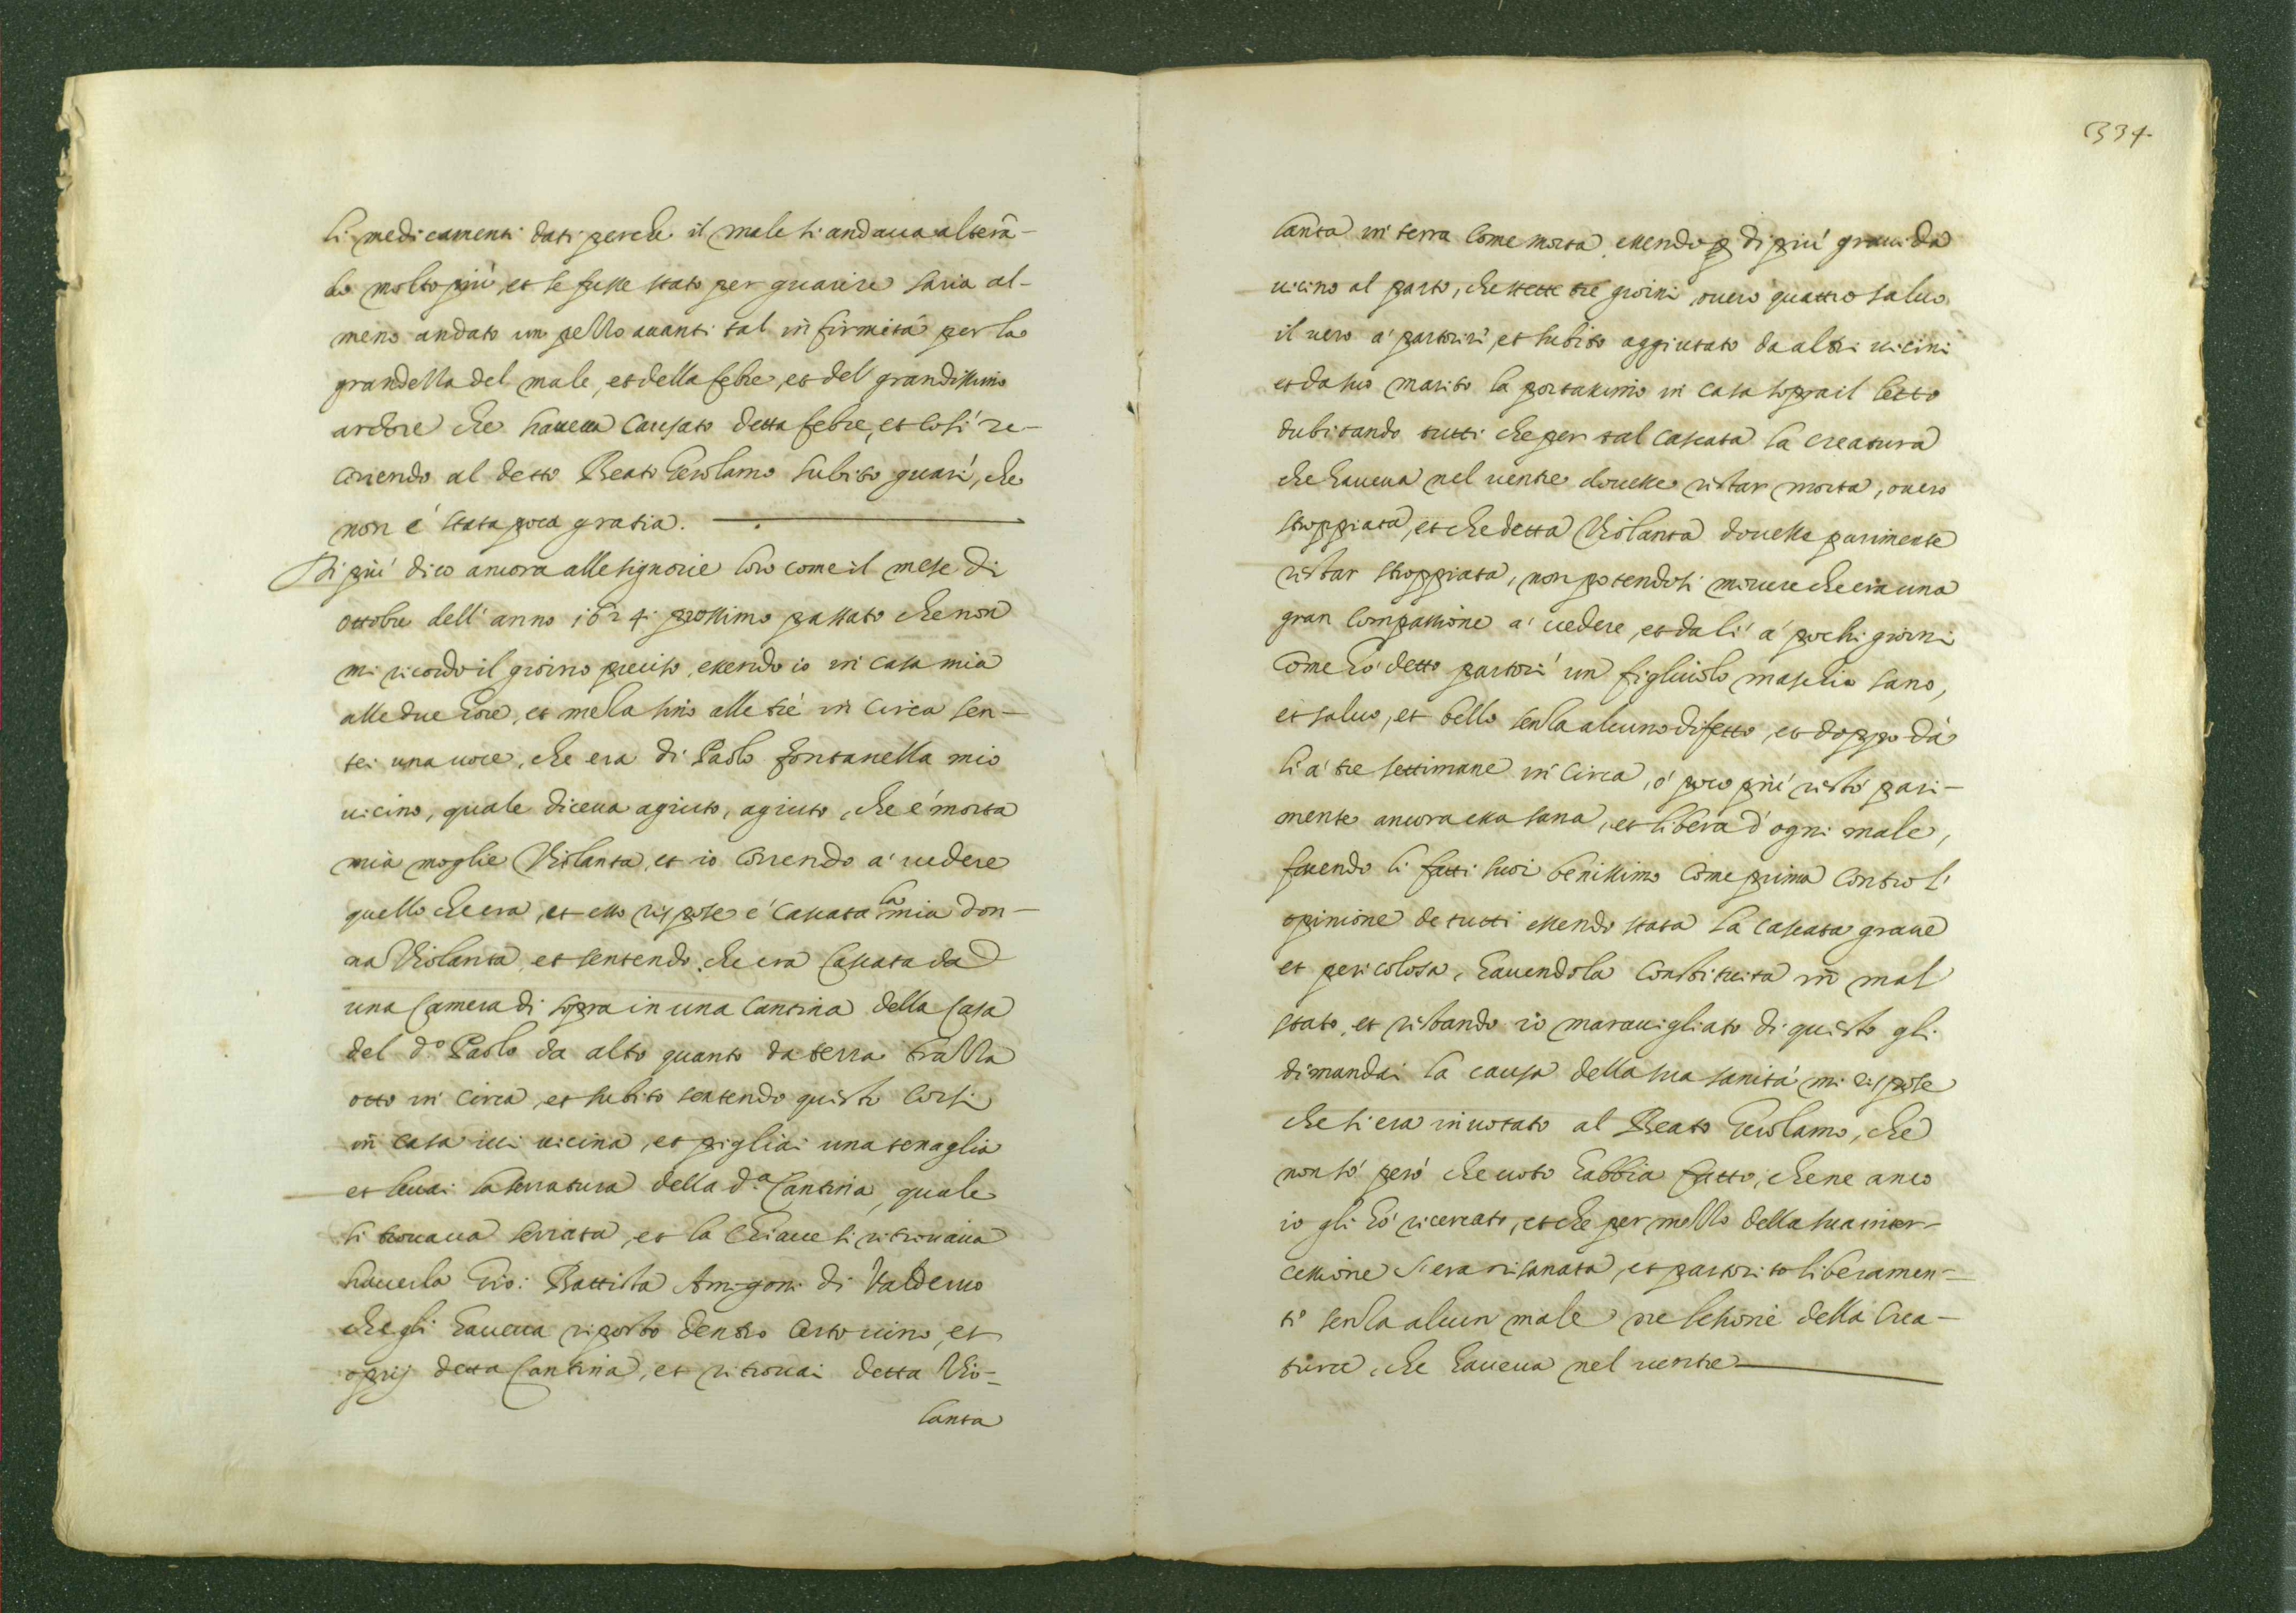 li medicamenti dati perche il male si andaua alterā-
do molto più, et se fusse stato per guarire saria al-
meno andato un pezzo auanti tal infirmità per la
grandezza del male, et della febre, et del grandissimo
ardore che haueua causato detta febre, et cosi re-
correndo al detto Beato Gerolamo subito guarì, che
non é stata poca gratia.
Di più dico ancora alle signorie loro come il mese di
ottobre dell'anno 1624 prossimo passato che non
mi ricordo il giorno preciso, essendo io in casa mia
alle due hore, et meza sino alle tré in circa sen-
tei una uoce, che era di Paolo fontanella mio
uicino, quale diceua agiuto, agiuto, che é morta
mia moglie Violanta, et io correndo a' uedere
quello che era, et esso rispose é cascata la mia don-
na Violanta, et sentendo che era cascata da
una Camera di sopra in una Cantina della Casa
del d.º Paolo da alto quanto da terra brazza
otto in circa, et subito sentendo questo corsi
in casa iui uicina, et pigliai una tenaglia
et leuai la serratura della d.ª Cantina, quale
si trouaua serrata, et la chiaue si ritrouaua
hauerla Gio: Battista Amigoni di Valderuo
che gli haueua riposto dentro certo uino, et
oprij detta Cantina, et ritrouai detta Vio-
lanta
334.
lanta in terra come morta, essendo di più grauida
uicino al parto, che stette tré giorni, ouero quattro saluo
il uero a' partorire, et subito aggiutato da altri uicini
et da suo marito la portassimo in casa sopra il letto
dubitando tutti che per tal cascata la creatura
che haueua nel uentre douesse restar morta, ouero
stroppiata, et che detta Violanta douesse parimente
restar stroppiata, non potendosi mouere che era una
gran compassione a' uedere, et da lì a' pochi giorni
come hó detto partorì un figliuolo maschio sano,
et saluo, et bello senza alcuno difetto, et doppo da
lì a' tre settimane in circa, ó poco più restó pari-
mente ancora essa sana, et libera d'ogni male,
facendo li fatti suoi benissimo come prima contro l'
opinione de tutti essendo stata la cascata graue
et pericolosa, hauendola constituita in mal
stato, et restando io marauigliato di questo gli
dimandai la causa della sua sanità mi rispose
che si era inuotato al Beato Gerolamo, che
non só peró che uoto habbia fatto, che ne anco
io gli hó ricercato, et che per mezzo della sua inter-
cessione s'era risanata, et partorito liberamen-
te senza alcun male ne lesione della crea-
tura, che haueua nel uentre